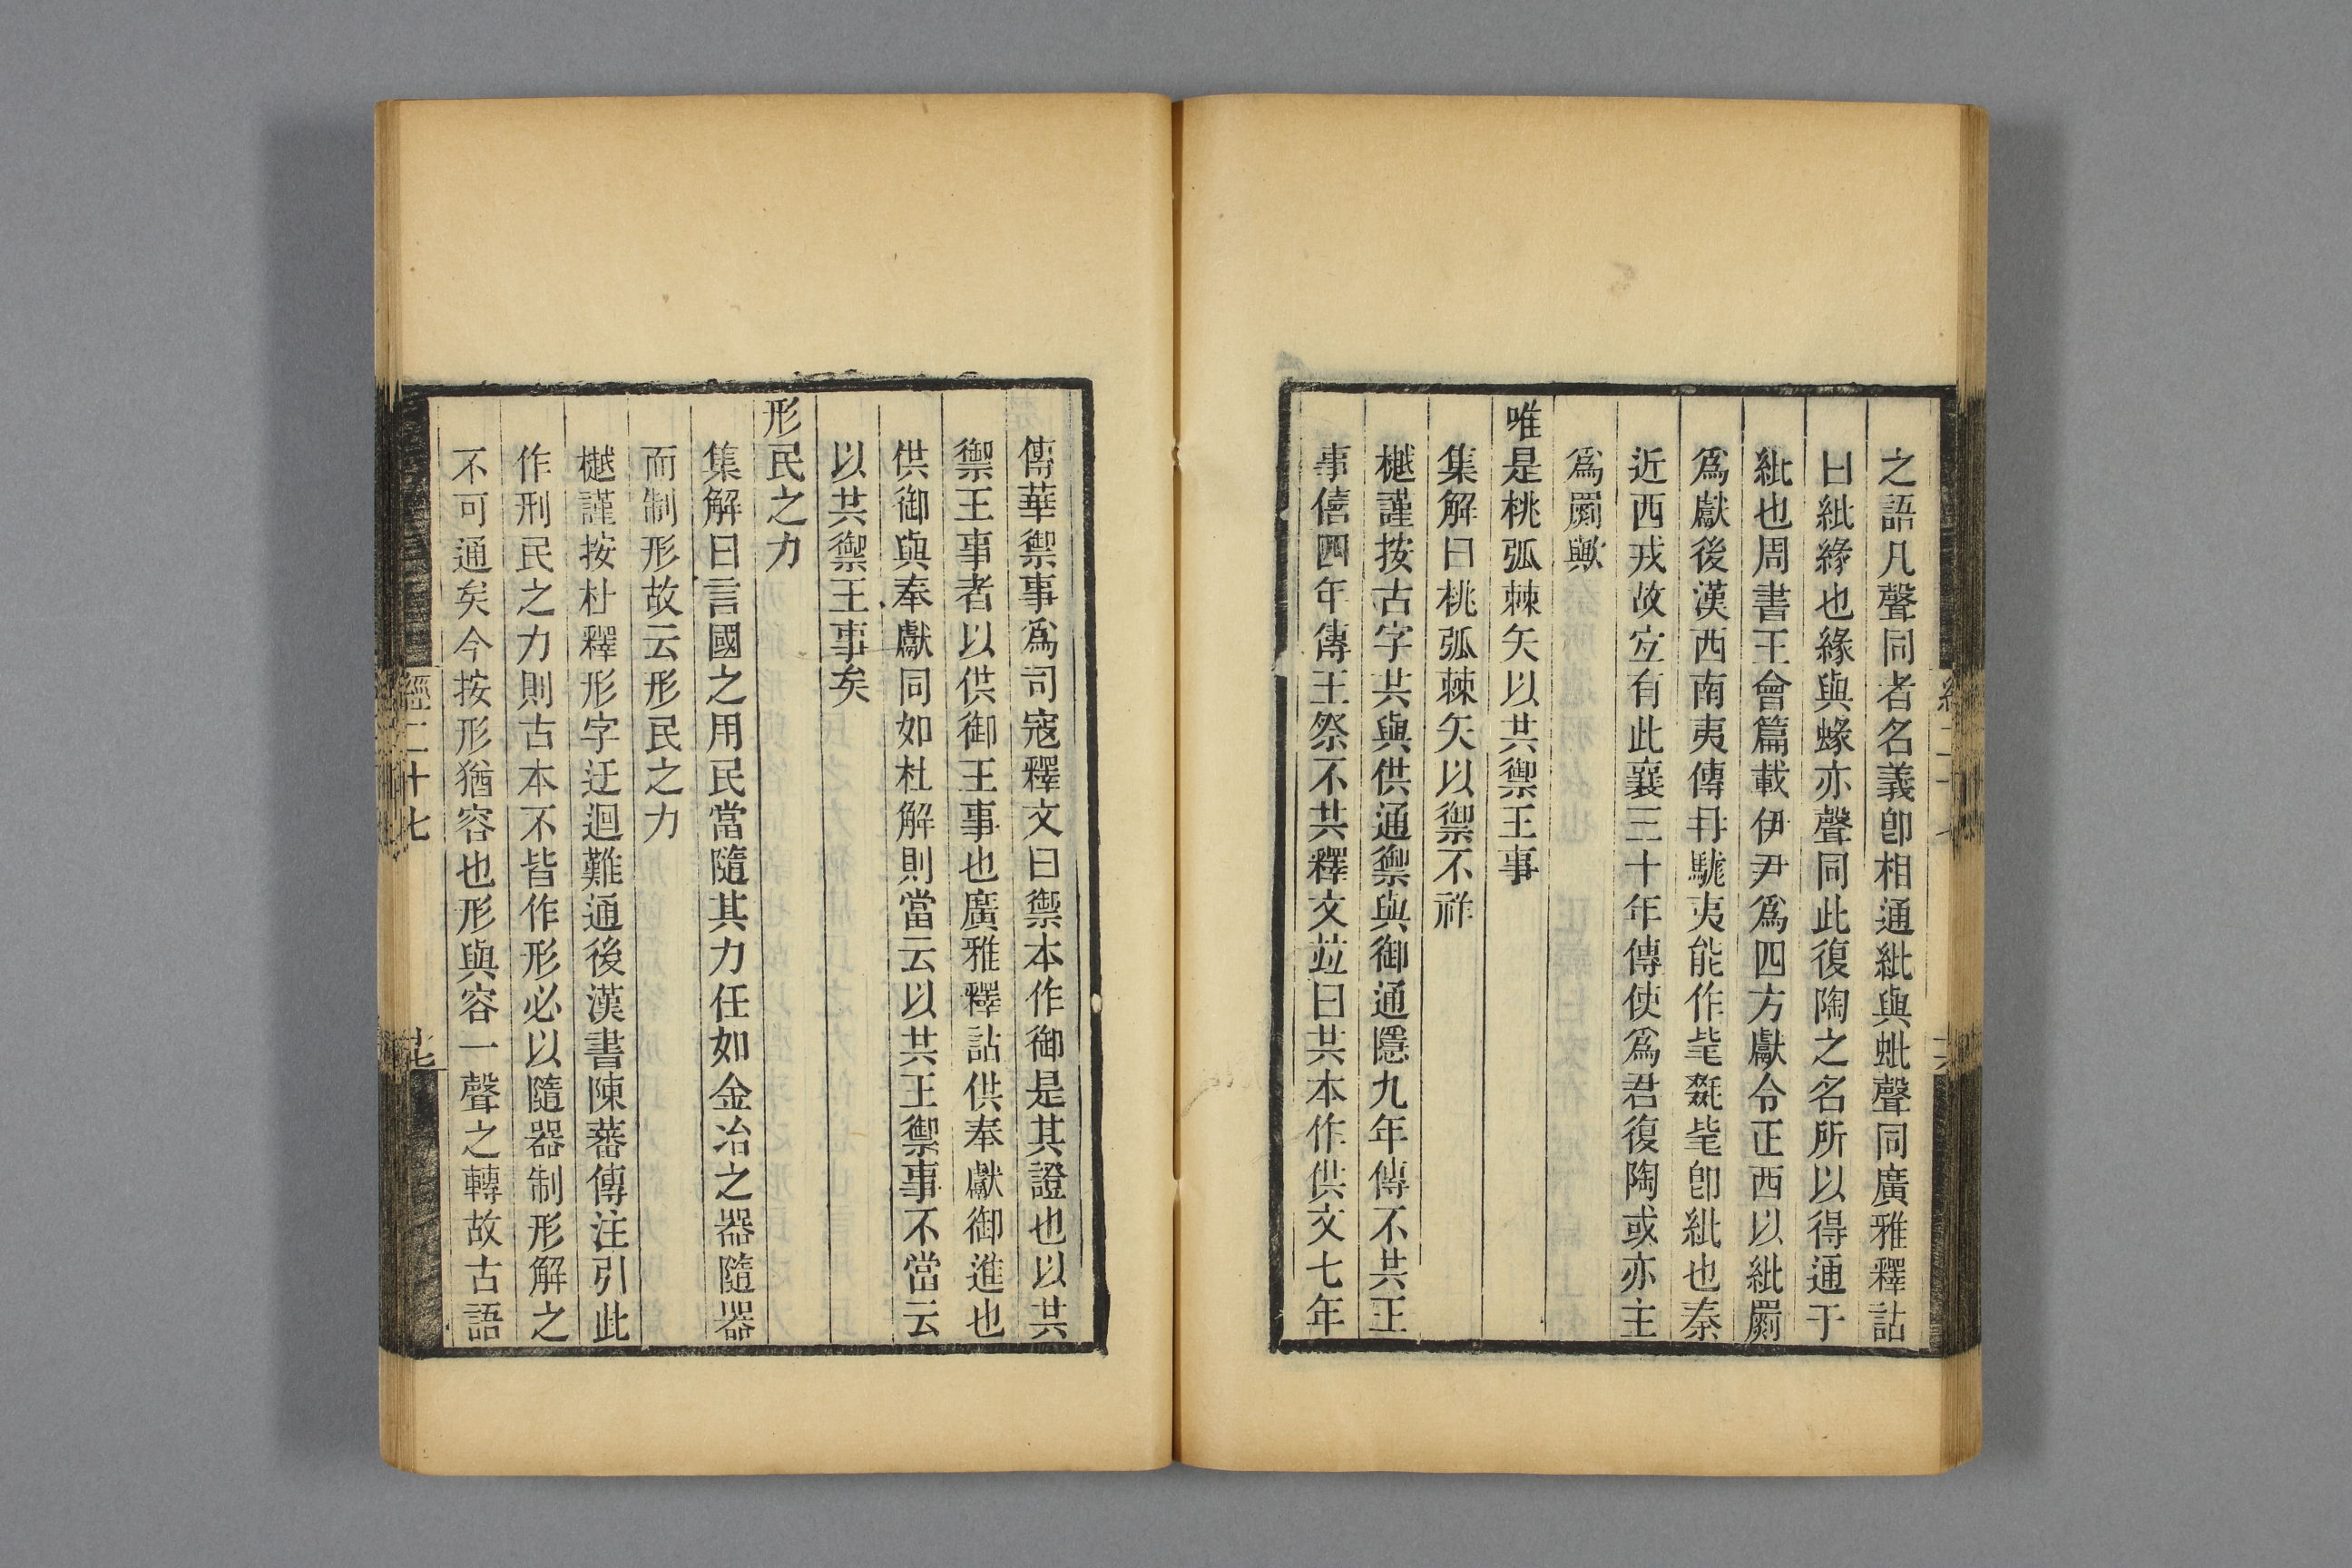 之語凡聲同者名義卽相通紕與蚍聲同廣雅釋詁
曰紕緣也緣與蝝亦聲同此復陶之名所以得通于
紕也周書王會篇載伊尹爲四方獻令正西以紕罽
爲獻後漢西南夷傳冄駹夷能作毞毲毞卽紕也秦
近西戎故宐有此襄三十年傳使爲君復陶或亦主
爲罽歟
唯是桃弧棘矢以共禦王事
集解曰桃弧棘矢以禦不祥
樾謹按古字共與供通禦與御通隱九年傳不共王
事僖四年傳王祭不共釋文竝曰共本作供文七年
傳華禦事爲司寇釋文曰禦本作御是其證也以共
禦王事者以供御王事也廣雅釋詁供奉獻御進也
供御與奉獻同如杜解則當云以共王禦事不當云
以共禦王事矣
形民之力
集解曰言國之用民當隨其力任如金冶之器隨器
而制形故云形民之力
樾謹按杜釋形字迂迴難通後漢書陳蕃傳注引此
作刑民之力則古本不皆作形必以隨器制形解之
不可通矣今按形猶容也形與容一聲之轉故古語
經二十七